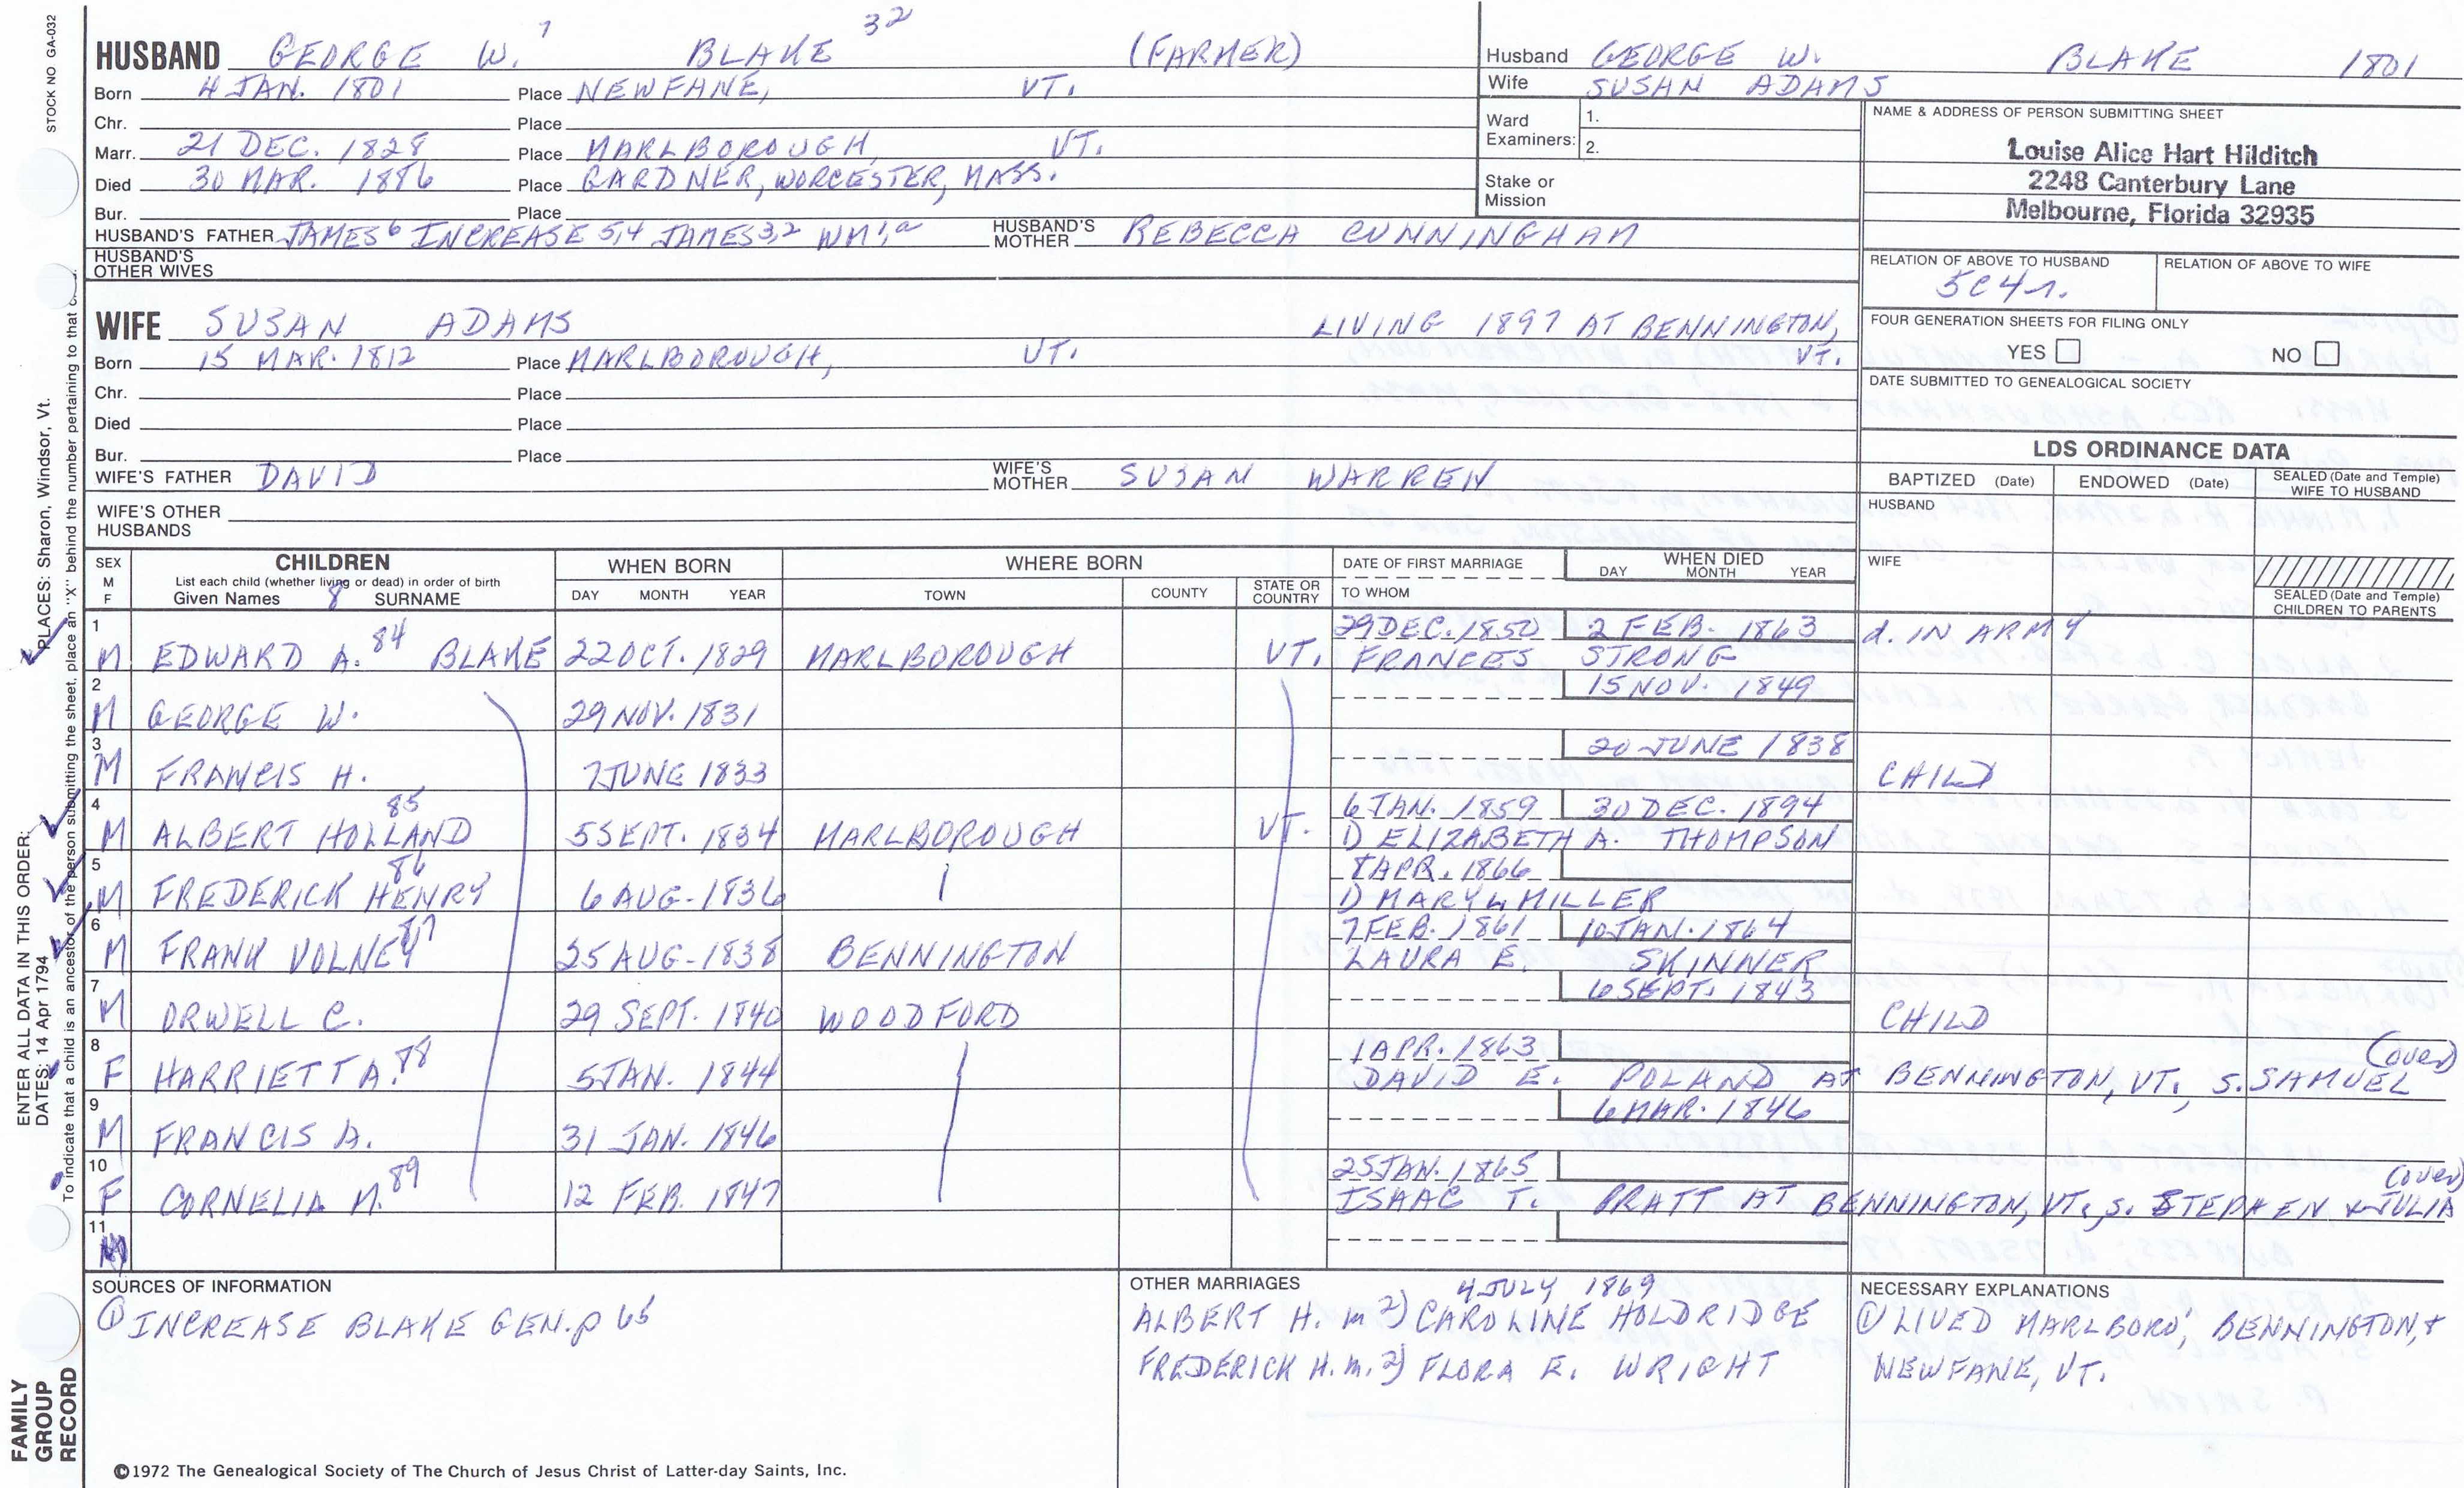 STOCK NO GA-032
HUSBAND GEORGE W. 7 BLAKE 32 (FARMER)
Born 4 JAN. 1801 Place NEWFANE, VT.
Chr. Place
Marr. 21 DEC. 1828 Place MARLBOROUGH, VT.
Died 30 MAR. 1886 Place GARDNER, WORCESTER, MASS.
Bur. Place
HUSBAND'S FATHER JAMES 6 INCREASE 5,4 JAMES 3,2 WM 1,a HUSBAND'S MOTHER REBECCA CUNNINGHAM
HUSBAND'S OTHER WIVES
Husband GEORGE W. BLAKE 1801
Wife SUSAN ADAMS
Ward Examiners: 1.
2.
Stake or Mission
NAME & ADDRESS OF PERSON SUBMITTING SHEET
Louise Alice Hart Hilditch
2248 Canterbury Lane
Melbourne, Florida 32935
RELATION OF ABOVE TO HUSBAND RELATION OF ABOVE TO WIFE
5C4r.
FOUR GENERATION SHEETS FOR FILING ONLY
YES NO
DATE SUBMITTED TO GENEALOGICAL SOCIETY
WIFE SUSAN ADAMS LIVING 1897 AT BENNINGTON, VT.
Born 15 MAR. 1812 Place MARLBOROUGH, VT.
Chr. Place
Died Place
Bur. Place
WIFE'S FATHER DAVID WIFE'S MOTHER SUSAN WARREN
WIFE'S OTHER HUSBANDS
LDS ORDINANCE DATA
BAPTIZED (Date) ENDOWED (Date) SEALED (Date and Temple) WIFE TO HUSBAND
HUSBAND
WIFE
SEALED (Date and Temple) CHILDREN TO PARENTS
SEX M F CHILDREN WHEN BORN WHERE BORN DATE OF FIRST MARRIAGE WHEN DIED
List each child (whether living or dead) in order of birth DAY MONTH YEAR
Given Names 8 SURNAME DAY MONTH YEAR TOWN COUNTY STATE OR COUNTRY TO WHOM
1 29 DEC. 1850 2 FEB. 1863 d. IN ARMY
M EDWARD A. 84 BLAKE 22 OCT. 1829 MARLBOROUGH VT. FRANCES STRONG
2 15 NOV. 1849
M GEORGE W. 29 NOV. 1831
3 20 JUNE 1838
M FRANCIS H. 7 JUNE 1833 CHILD
4 6 JAN. 1859 30 DEC. 1894
M ALBERT HOLLAND 85 5 SEPT. 1834 MARLBOROUGH VT. 1) ELIZABETH A. THOMPSON
5 8 APR. 1866
M FREDERICK HENRY 86 6 AUG. 1836 1) MARY L. MILLER
6 7 FEB. 1861 10 JAN. 1864
M FRANK VOLNEY 87 25 AUG. 1838 BENNINGTON LAURA E. SKINNER
7 6 SEPT. 1843
M ORWELL C. 29 SEPT. 1840 WOODFORD CHILD
8 1 APR. 1863 (over)
F HARRIET A. 88 5 JAN. 1844 DAVID E. POLAND AT BENNINGTON, VT., S. SAMUEL
9 6 MAR. 1846
M FRANCIS A. 31 JAN. 1846
10 25 JAN. 1865 (over)
F CORNELIA M. 89 12 FEB. 1847 ISAAC T. PRATT AT BENNINGTON, VT., S. STEPHEN & JULIA
11
SOURCES OF INFORMATION
① INCREASE BLAKE GEN. p 65
OTHER MARRIAGES
4 JULY 1869
ALBERT H. m 2) CAROLINE HOLDRIDGE
FREDERICK H. m. 2) FLORA E. WRIGHT
NECESSARY EXPLANATIONS
① LIVED MARLBORO, BENNINGTON, &
NEWFANE, VT.
ENTER ALL DATA IN THIS ORDER:
DATES: 14 Apr 1794 PLACES: Sharon, Windsor, Vt.
To indicate that a child is an ancestor of the person submitting the sheet, place an "X" behind the number pertaining to that
FAMILY
GROUP
RECORD
©1972 The Genealogical Society of The Church of Jesus Christ of Latter-day Saints, Inc.